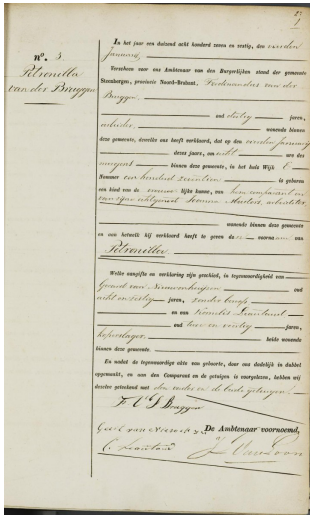 27
1
nº. 3.
Petronilla
van der Bruggen
In het jaar een duizend acht honderd zeven en zestig, den vierden
Januarij,
Verscheen voor ons Ambtenaar van den Burgerlijken stand der gemeente
Steenbergen, provincie Noord-Brabant, Ferdinandus van der
Bruggen,
oud dertig jaren,
arbeider, wonende binnen
deze gemeente, dewelke ons heeft verklaard, dat op den vierden Januarij
dezes jaars, om acht ure des
morgens binnen deze gemeente, in het huis Wijk E
Nommer een honderd zeventien is geboren
een kind van de vrouwelijke kunne, van hem comparant en
van zijne echtgenoot Joanna Musters, arbeidster,
wonende binnen deze gemeente
en aan hetwelk hij verklaard heeft te geven de voornaam van
Petronilla.
Welke aangifte en verklaring zijn geschied, in tegenwoordigheid van
Gerard van Nieuwenhuijzen oud
acht en zestig jaren, zonder beroep
en van Cornelis
oud twee en veertig jaren,
beide wonende
binnen deze gemeente.
En nadat de tegenwoordige akte van geboorte, door ons dadelijk in dubbel
opgemaakt, en aan den Comparant en de getuigen is voorgelezen, hebben wij
dezelve geteekend met den vader en de beide getuigen.
F V D Bruggen
De Ambtenaar voornoemd,
C.
van Loon